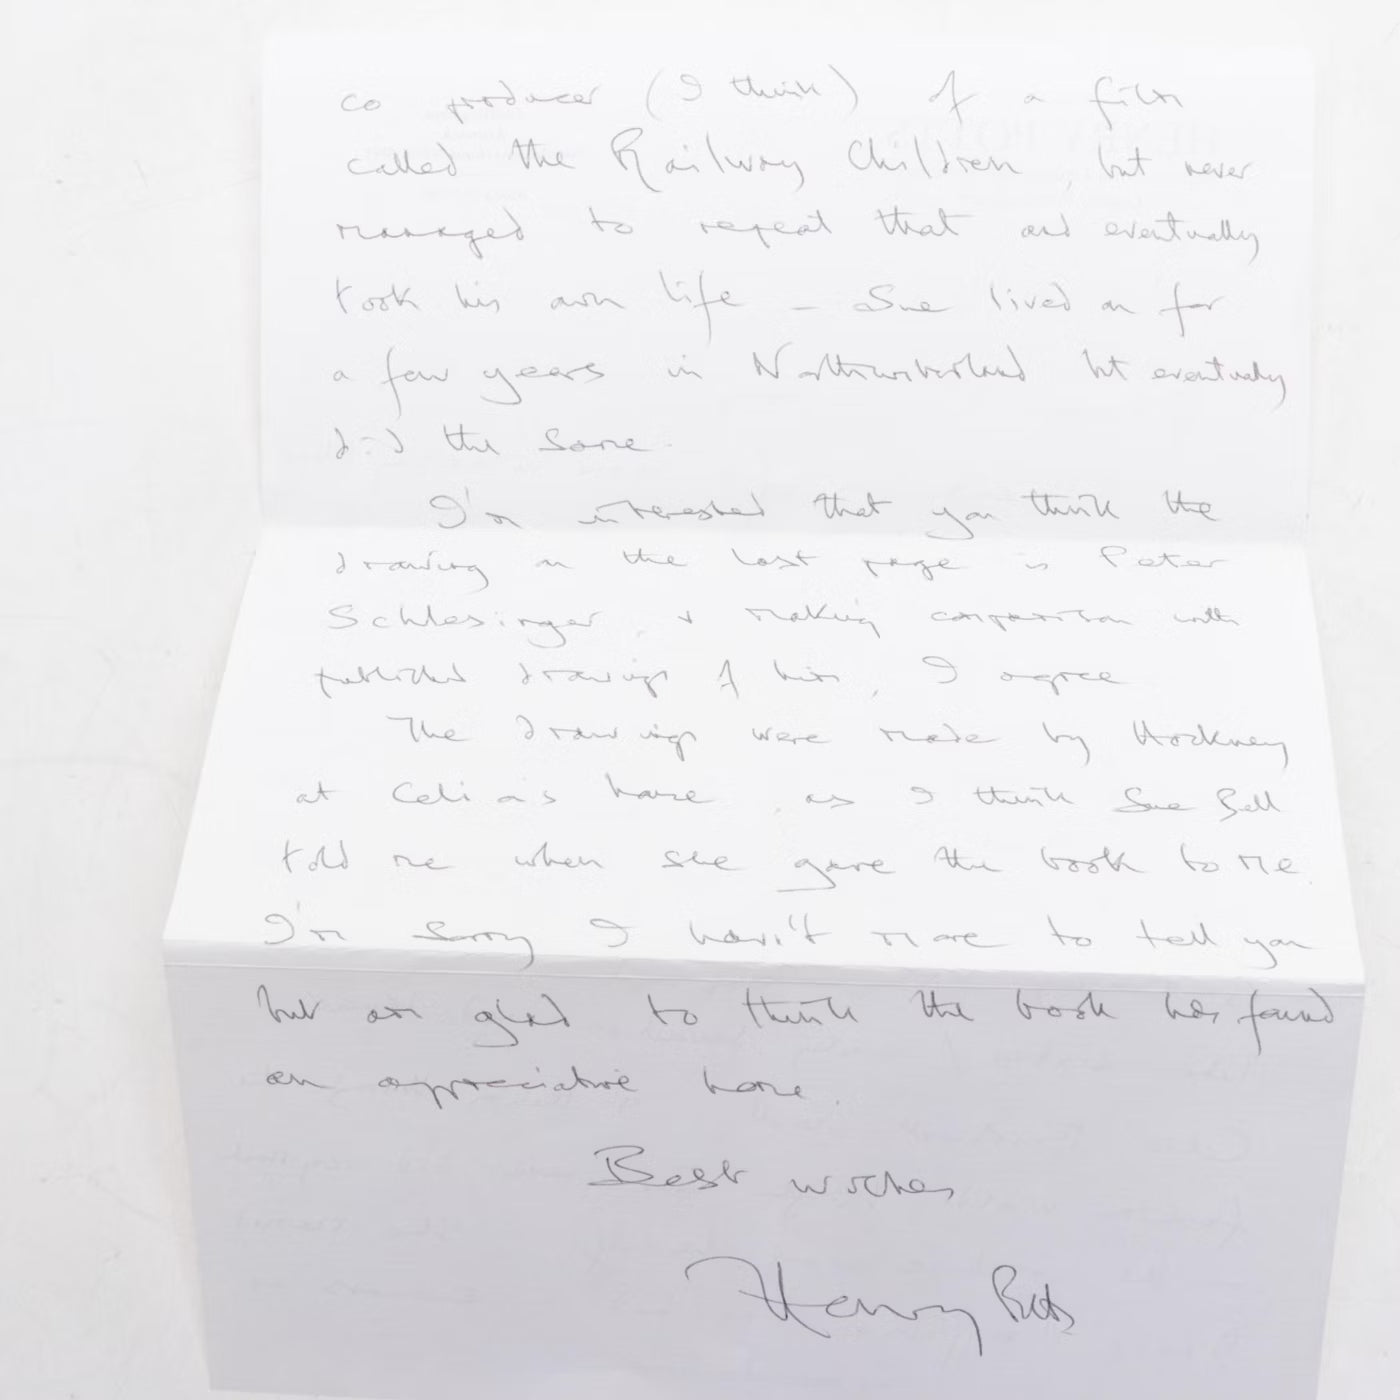 co producer (I think) of a film
called the Railway Children, but never
managed to repeat that and eventually
took his own life – Sue lived on for
a few years in Northumberland but eventually
did the same.
I'm interested that you think the
drawing on the last page is Peter
Schlesinger, & making comparison with
published drawings of him, I agree
The drawings were made by Hockney
at Celia's house, as I think Sue Bell
told me when she gave the book to me.
I'm sorry I haven't more to tell you
but am glad to think the book has found
an appreciative home.
Best wishes
Henry